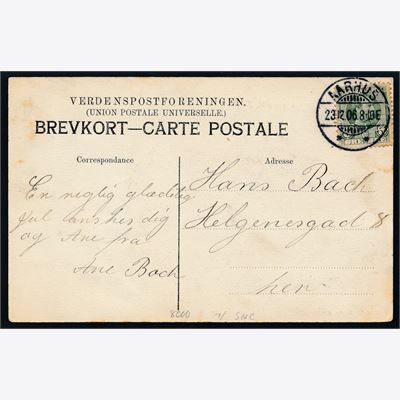 VERDENSPOSTFORENINGEN.
(UNION POSTALE UNIVERSELLE.)
BREVKORT—CARTE POSTALE
AARHUS
23.12.06.8-10E
Correspondance
Adresse
En glædelig
Jul ønskes dig
og Ane fra
Ane Bach
Hans Bach
Helgenesgad 8
her
8000
SMC